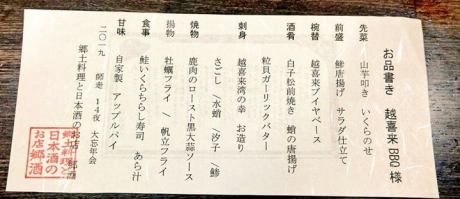 お品書き 越喜来BBQ 様
先菜 山芋叩き いくらのせ
前盛 鮭唐揚げ サラダ仕立て
椀替 越喜来ブイヤベース
酒肴 白子松前焼き 蛸の唐揚げ
粒貝ガーリックバター
刺身 越喜来湾の幸 お造り
さごし／水蛸／汐子／鯵
焼物 鹿肉のロースト黒大蒜ソース
揚物 牡蠣フライ／帆立フライ
食事 鮭いくらちらし寿司 あら汁
甘味 自家製 アップルパイ
二〇一九 師走 14夜 大忘年会
郷土料理と日本酒のお店 郷酒
郷土料理と
日本酒の
お店郷酒